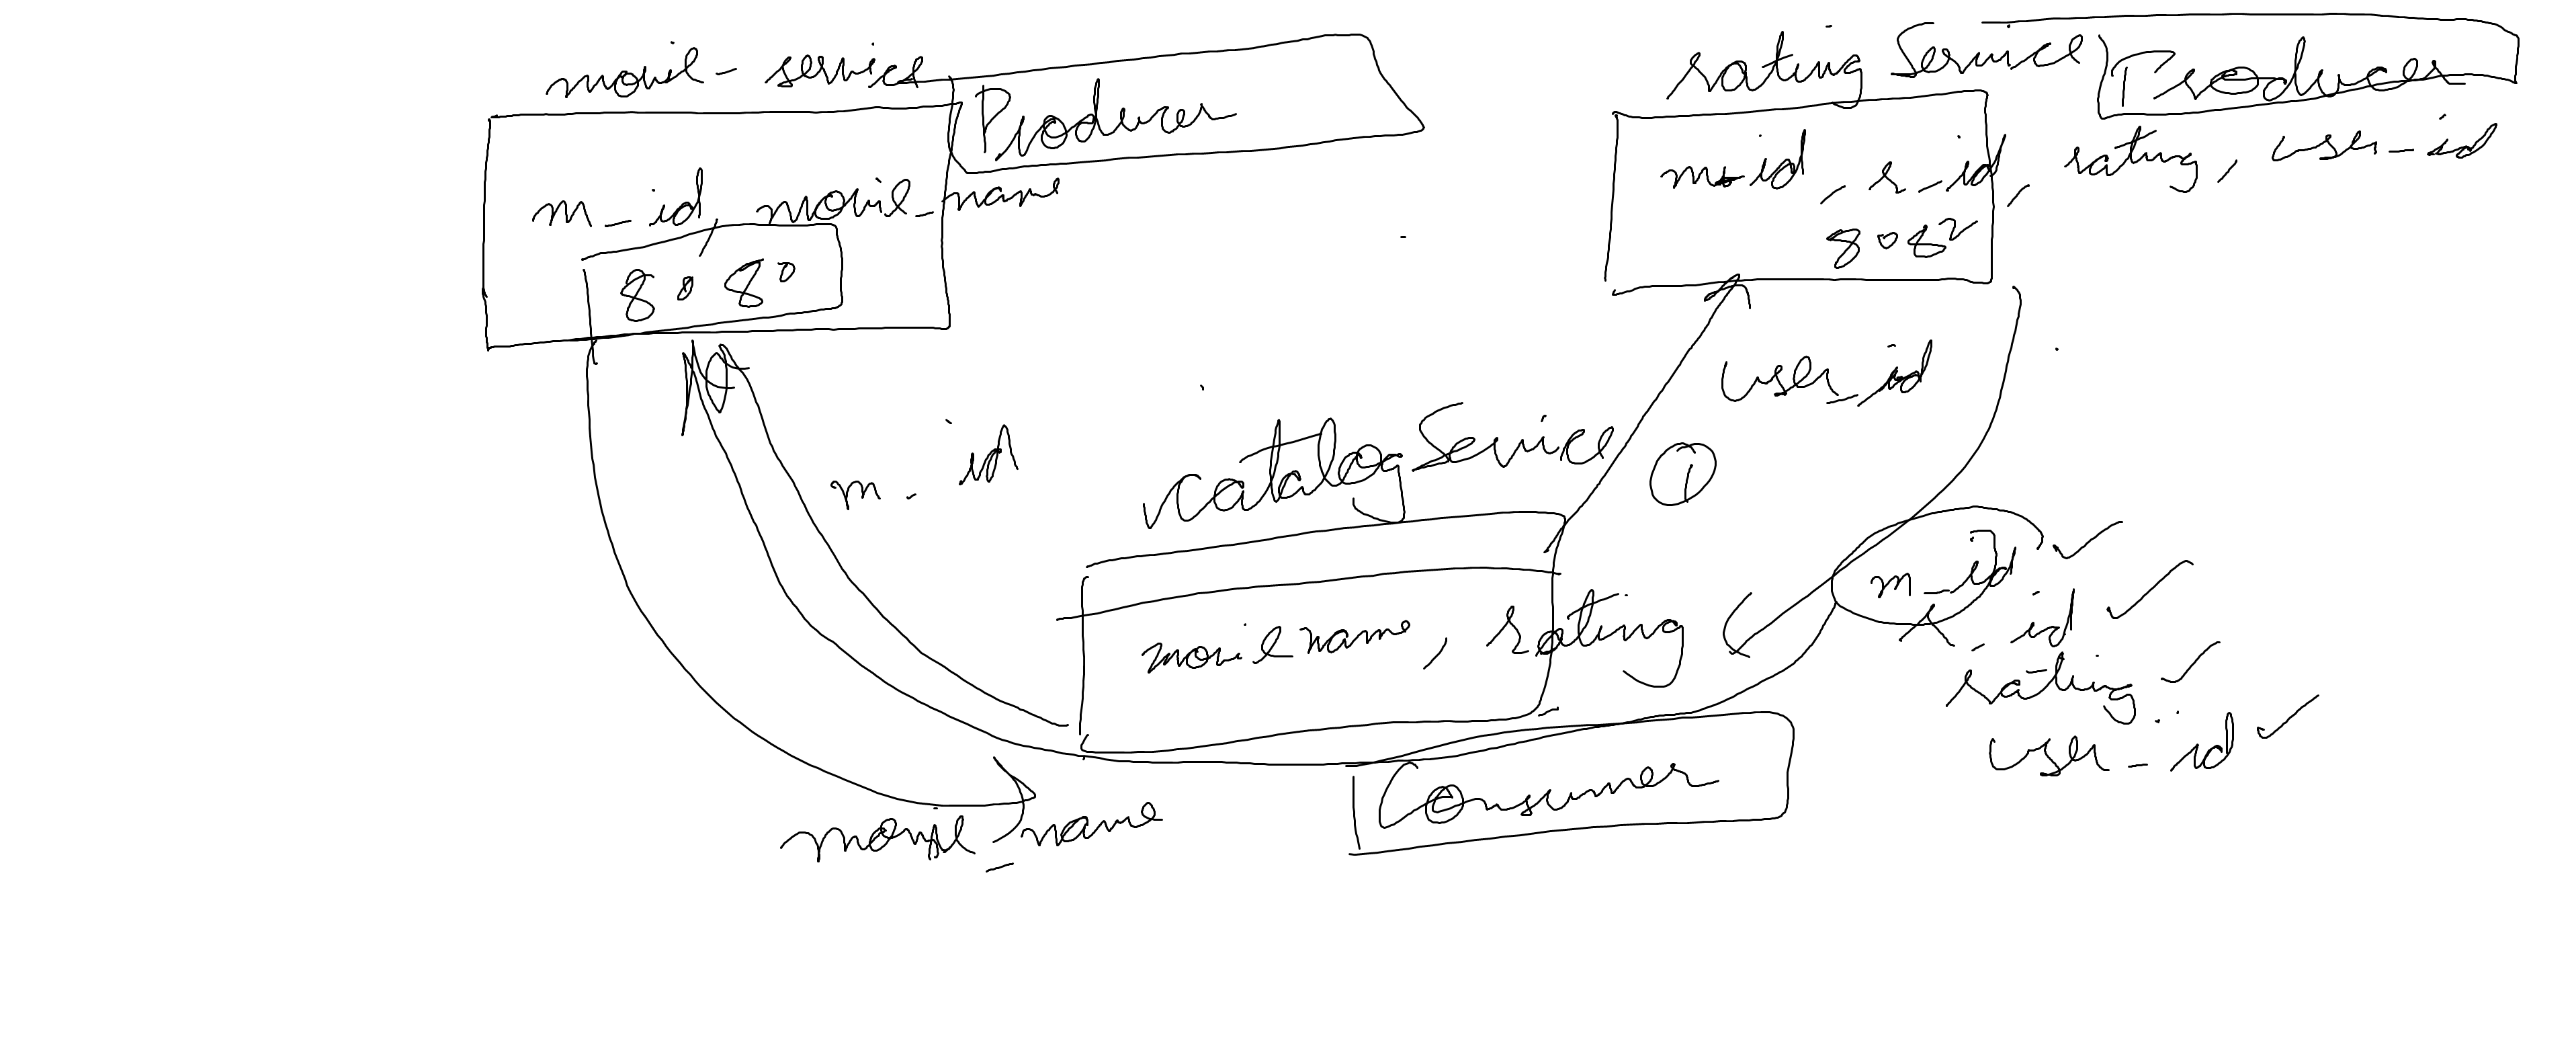 movie-service
Producer
m_id, movie_name
8080
rating Service
Producer
m_id, r_id, rating, user_id
8082
user_id
1
m_id
catalog Service
movie name, rating
m_id
r_id
rating
user_id
Consumer
movie_name